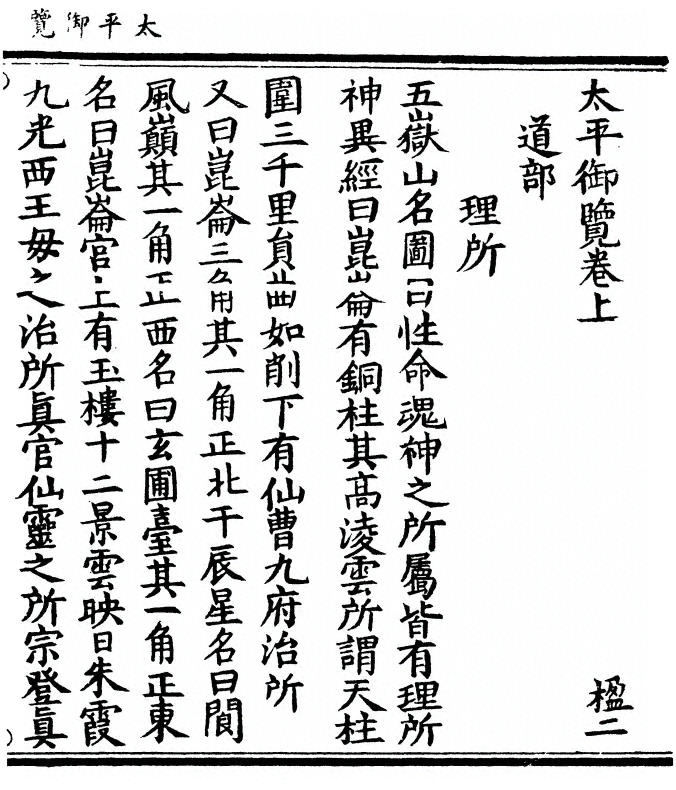 太平御覽
太平御覽卷上　楹二
道部
理所
五嶽山名圖曰性命魂神之所屬皆有理所
神異經曰崑崙有銅柱其高淩雲所謂天柱
圍三千里貟曲如削下有仙曹九府治所
又曰崑崙三角其一角正北干辰星名曰閬
風巔其一角正西名曰玄圃臺其一角正東
名曰崑崙官上有玉樓十二景雲映日朱霞
九光西王母之治所眞官仙靈之所宗登眞